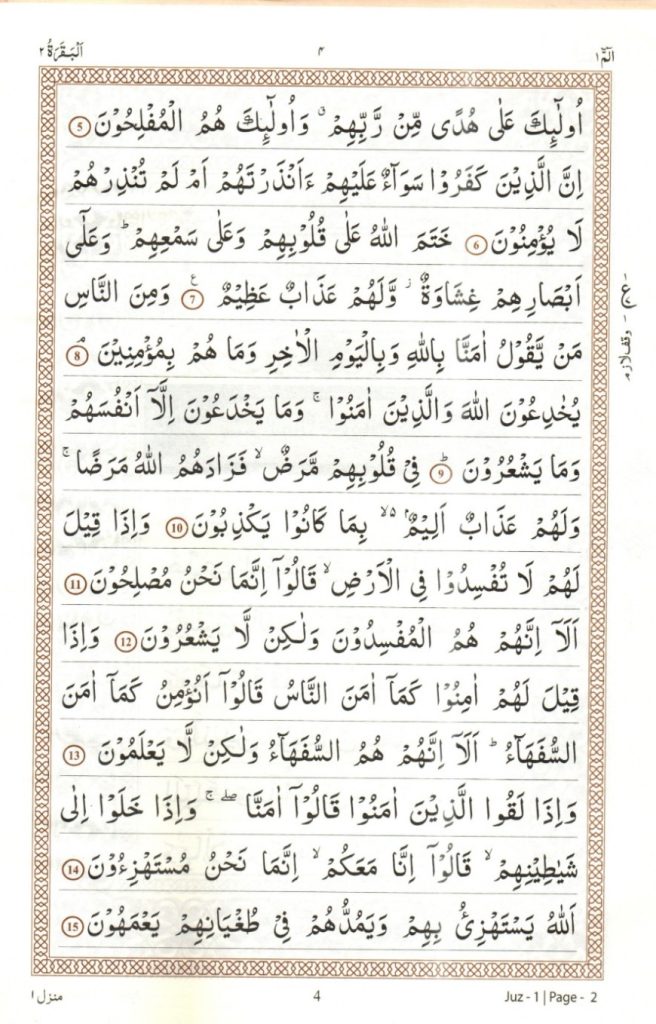 الٓمّٓ ١
۴
اَلْبَقَرَة ٢
اُولٰٓئِكَ عَلٰى هُدًى مِّنْ رَّبِّهِمْ ۙ وَاُولٰٓئِكَ هُمُ الْمُفْلِحُوْنَ 5
اِنَّ الَّذِيْنَ كَفَرُوْا سَوَآءٌ عَلَيْهِمْ ءَاَنْذَرْتَهُمْ اَمْ لَمْ تُنْذِرْهُمْ
لَا يُؤْمِنُوْنَ 6 خَتَمَ اللّٰهُ عَلٰى قُلُوْبِهِمْ وَعَلٰى سَمْعِهِمْ ؕ وَعَلٰٓى
اَبْصَارِهِمْ غِشَاوَةٌ ؗ وَّلَهُمْ عَذَابٌ عَظِيْمٌ 7 ع وَمِنَ النَّاسِ
مَنْ يَّقُوْلُ اٰمَنَّا بِاللّٰهِ وَبِالْيَوْمِ الْاٰخِرِ وَمَا هُمْ بِمُؤْمِنِيْنَ ۘ 8
يُخٰدِعُوْنَ اللّٰهَ وَالَّذِيْنَ اٰمَنُوْا ۚ وَمَا يَخْدَعُوْنَ اِلَّآ اَنْفُسَهُمْ
وَمَا يَشْعُرُوْنَ ؕ 9 فِيْ قُلُوْبِهِمْ مَّرَضٌ ۙ فَزَادَهُمُ اللّٰهُ مَرَضًا ۚ
وَلَهُمْ عَذَابٌ اَلِيْمٌۢ ۙ۵ بِمَا كَانُوْا يَكْذِبُوْنَ 10 وَاِذَا قِيْلَ
لَهُمْ لَا تُفْسِدُوْا فِى الْاَرْضِ ۙ قَالُوْٓا اِنَّمَا نَحْنُ مُصْلِحُوْنَ 11
اَلَآ اِنَّهُمْ هُمُ الْمُفْسِدُوْنَ وَلٰكِنْ لَّا يَشْعُرُوْنَ 12 وَاِذَا
قِيْلَ لَهُمْ اٰمِنُوْا كَمَآ اٰمَنَ النَّاسُ قَالُوْٓا اَنُؤْمِنُ كَمَآ اٰمَنَ
السُّفَهَآءُ ؕ اَلَآ اِنَّهُمْ هُمُ السُّفَهَآءُ وَلٰكِنْ لَّا يَعْلَمُوْنَ 13
وَاِذَا لَقُوا الَّذِيْنَ اٰمَنُوْا قَالُوْٓا اٰمَنَّا ۖۚ وَاِذَا خَلَوْا اِلٰى
شَيٰطِيْنِهِمْ ۙ قَالُوْٓا اِنَّا مَعَكُمْ ۙ اِنَّمَا نَحْنُ مُسْتَهْزِءُوْنَ 14
اَللّٰهُ يَسْتَهْزِئُ بِهِمْ وَيَمُدُّهُمْ فِيْ طُغْيَانِهِمْ يَعْمَهُوْنَ 15
وقف لازم
منزل ١
4
Juz - 1 | Page - 2